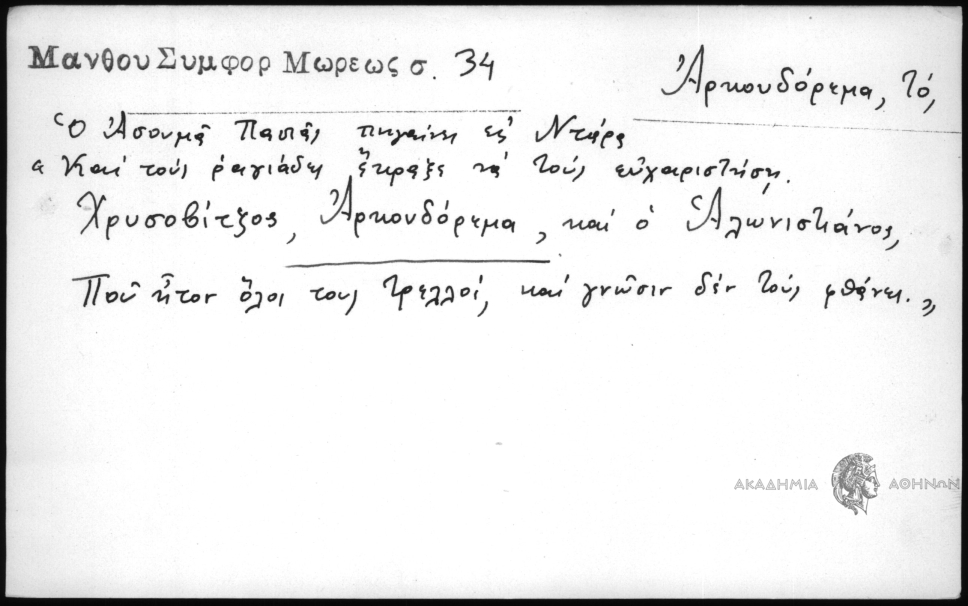 Μανθου Συμφορ Μωρεως σ. 34
Ἀρκουδόρεμα, τό,
Ὁ Ἀσουμᾶ Πασιᾶς πηγαίνει εἰς Ντάρα
« Καί τούς ραγιάδες ἔκραξε νά τούς εὐχαριστήση.
Χρυσοβίτζος, Ἀρκουδόρεμα, καί ὁ Ἁλωνιστιάνος,
Ποῦ ἦτον ὅλοι τους τρελλοί, καί γνῶσιν δέν τούς φθάνει. »
ΑΚΑΔΗΜΙΑ ΑΘΗΝΩΝ